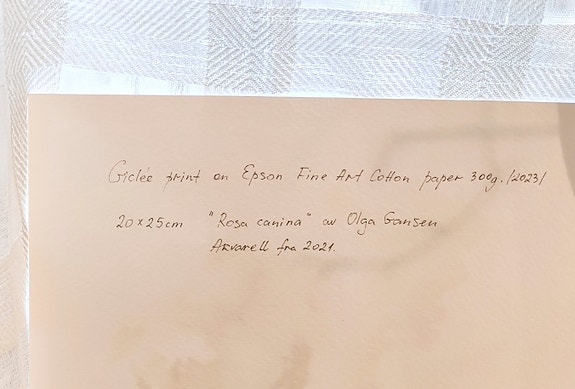 Giclée print on Epson Fine Art Cotton paper 300g. /2023/
20x25cm "Rosa canina" av Olga Gansen
Akvarell fra 2021.